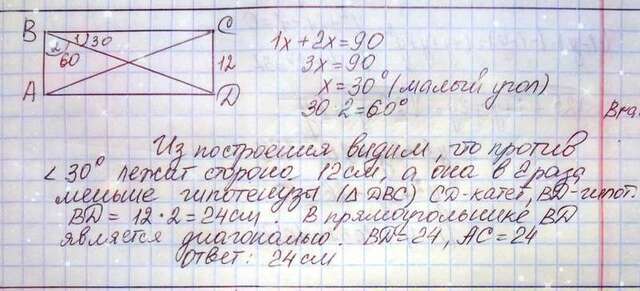 B
C
2
1
30
60
A
12
D
1x + 2x = 90
3x = 90
x = 30° (малый угол)
30·2 = 60°
Из построения видим, что против
∠30° лежит сторона 12см, а она в 2 раза
меньше гипотенузы (△DBC) CD-катет, BD-гипот.
BD = 12·2 = 24см В прямоугольнике BD
является диагональю. BD=24, AC=24
ответ: 24см